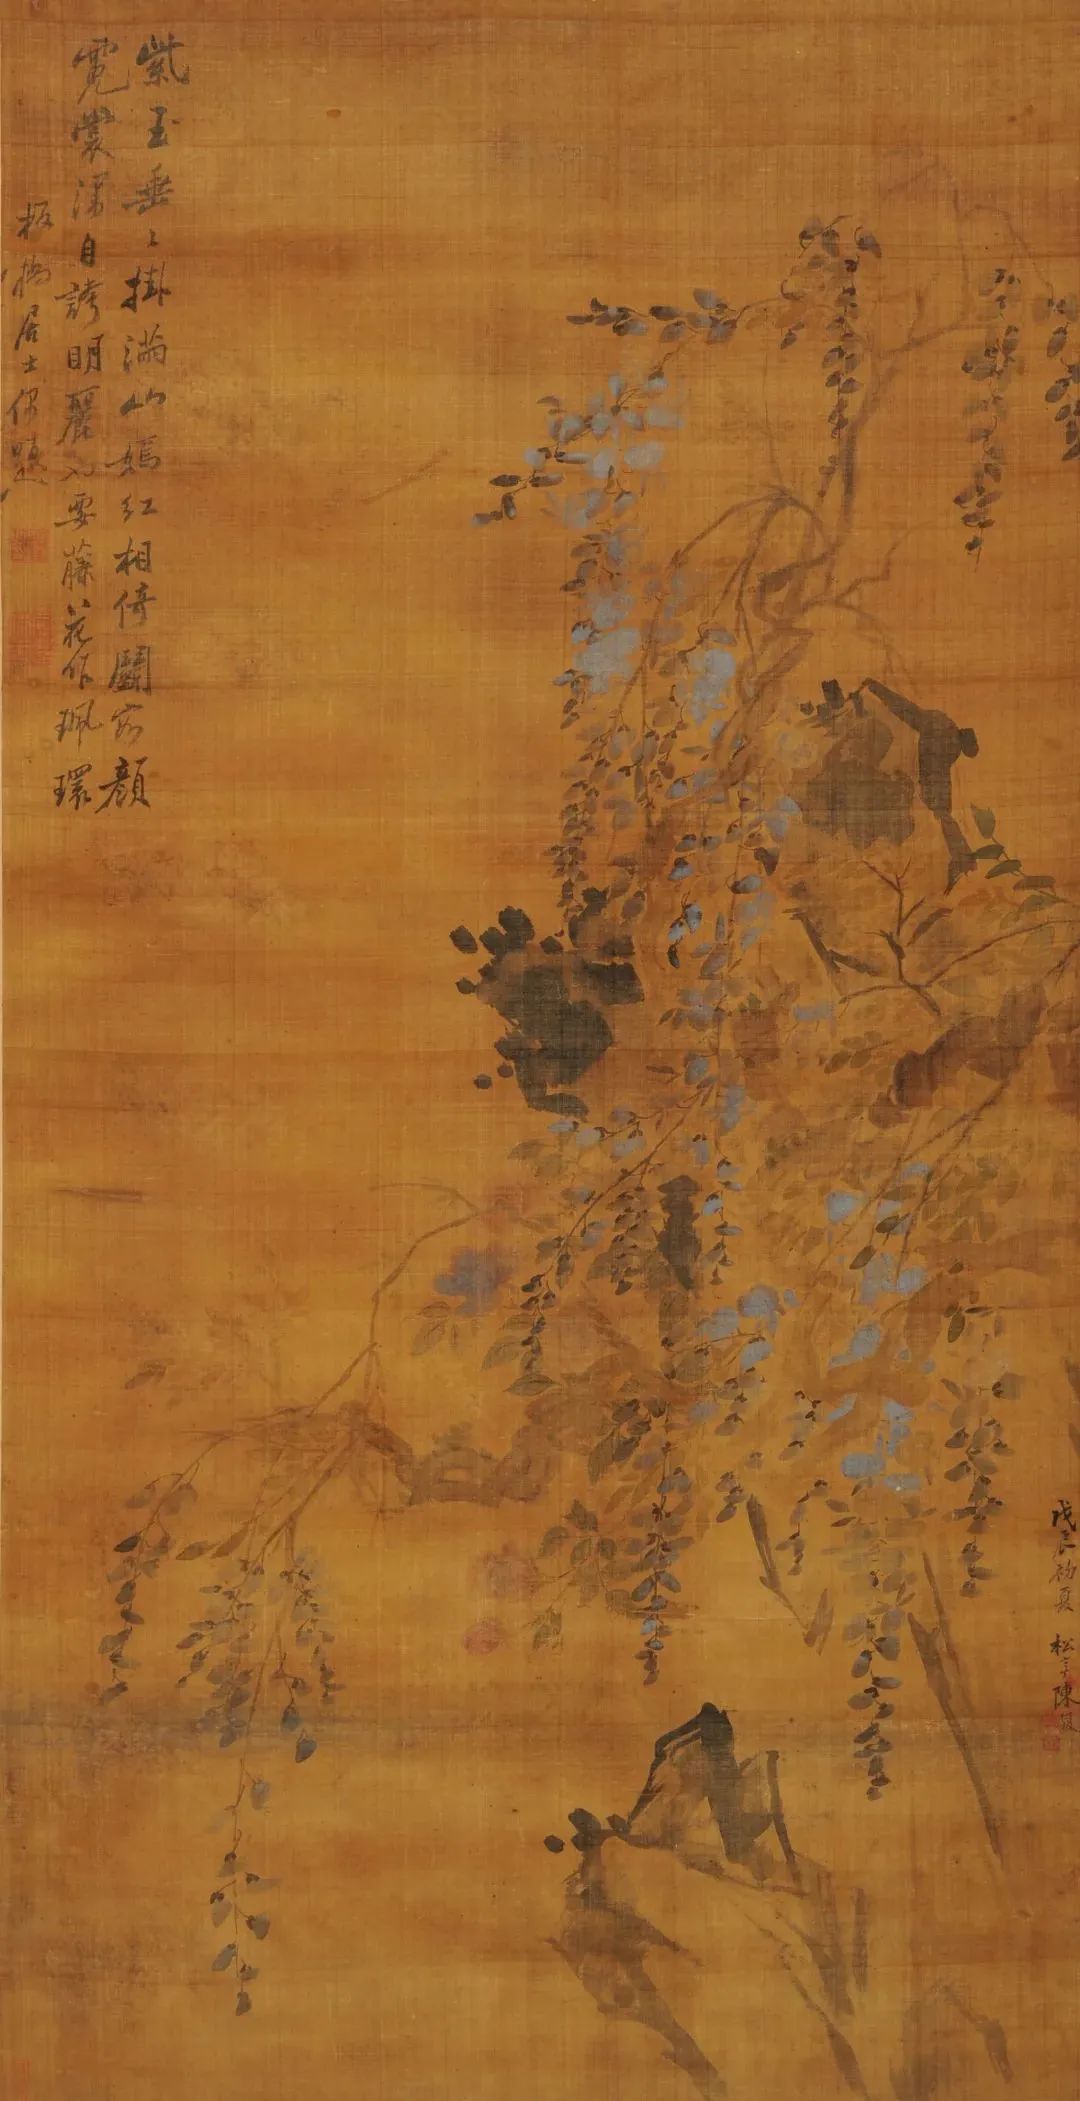 紫玉垂〻掛滿山嫣紅相倚鬭容顏
霓裳漫自誇明麗也要藤花作珮環
板橋居士偶題
戊辰初夏 松亭陳馥